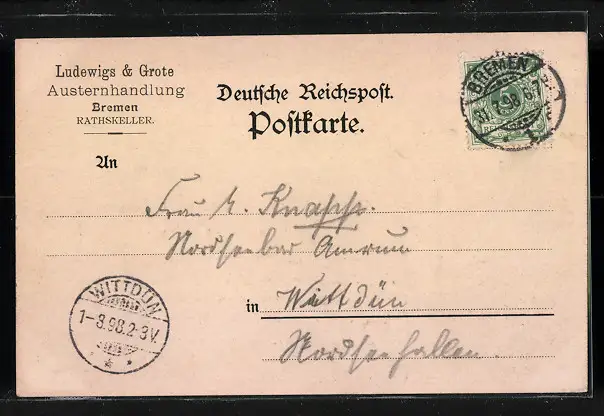 Ludewigs & Grote
Austernhandlung
Bremen
RATHSKELLER.
Deutsche Reichspost.
Postkarte.
BREMEN
31.7.98
An
Frau M. Knapp.
Nordseebad Amrum
in Wittdün
Nordseehallen.
WITTDÜN
1-8.98.2-3V.